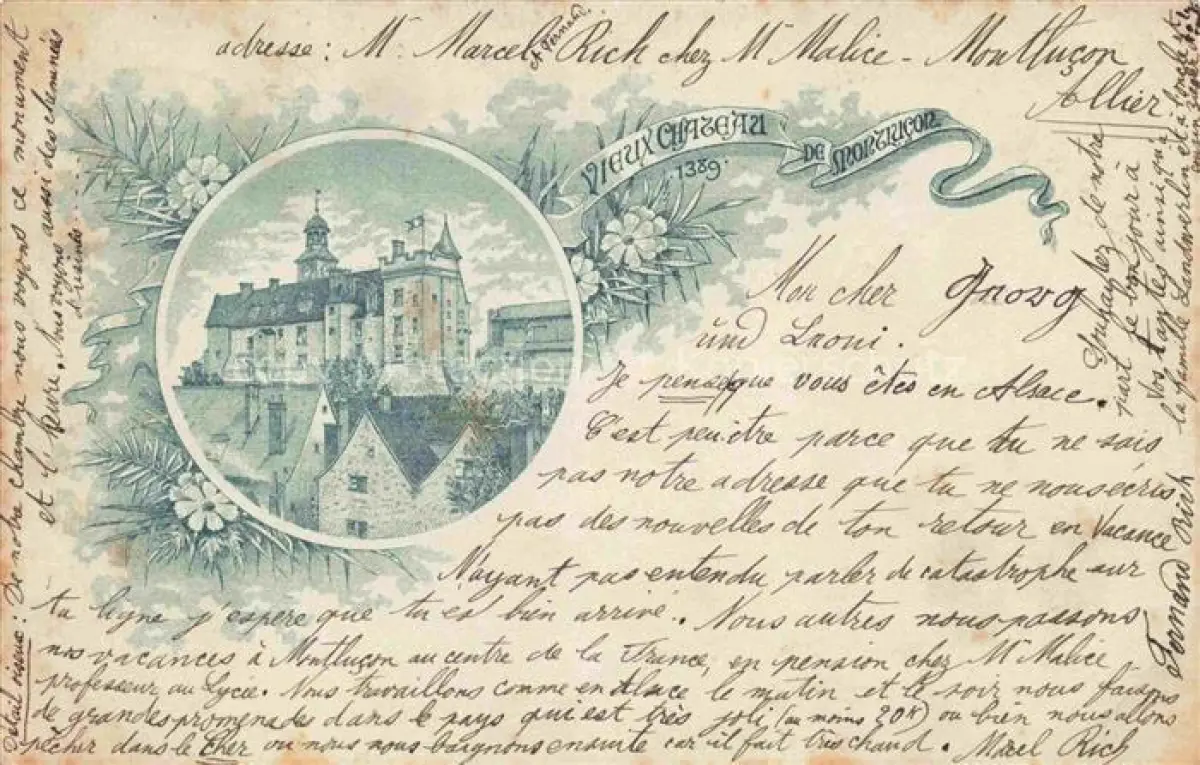 adresse : Mr. Marcel Rich chez Mr Malice - Montluçon
et Fernand
Allier
VIEUX CHATEAU
DE MONTLUÇON
1389
Mon cher
und
Je pense que vous êtes en Alsace.
C'est peu être parce que tu ne sais
pas notre adresse que tu ne nous écris
pas des nouvelles de ton retour en Vacance
N'ayant pas entendu parler de catastrophe sur
ta ligne j'espere que tu es bien arrivé. Nous autres nous passons
nos vacances à Montluçon au centre de la France, en pension chez Mr Malice
professeur au Lycée. Nous travaillons comme en Alsace le matin et le soir nous faisons
de grandes promenades dans le pays qui est très joli (au moins 20 K) ou bien nous allons
pêcher dans le Cher ou nous nous baignons ensuite car il fait très chaud. Marcel Rich
Détail risible : De notre chambre nous voyons ce monument
et l'heure. Nous voyons aussi des cheminées
d'usines
Souhaitez de notre
part le bonjour à
Vos ainsi qu'à
la famille et à
Fernand Rich